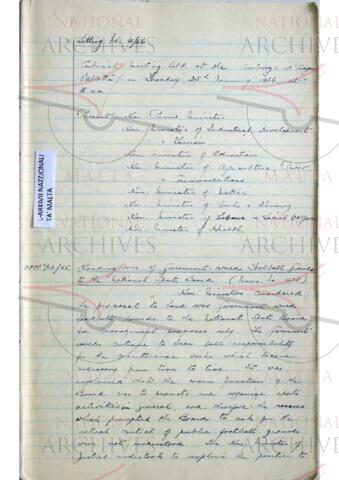 Sitting No. 4/66
Cabinet meeting held at the Auberge d'Aragon
Valletta, on Tuesday, 25th January, 1966, at
11 am.
Present: Hon. Prime Minister
Hon. Minister of Industrial Development
& Tourism
Hon. Minister of Education
Hon. Minister of Agriculture, Power
& Communications
Hon. Minister of Justice
Hon. Minister of Works & Housing
Hon. Minister of Labour & Social Welfare
Hon. Minister of Health.
L-ARKIVJI NAZZJONALI
TA' MALTA
OPM 92/65. Handing over of Government-owned Football grounds
to the National Sports Board (Memo No. )
Hon. Ministers considered
a proposal to hand over government owned
football grounds to the National Sports Board
for management purposes only. The Government
would continue to bear full responsibility
for the maintenance works which become
necessary from time to time. It was
explained that the main function of the
Board was to promote and organise sports
activities in general, and therefore the reasons
which prompted the Board to ask for the
actual control of public football grounds
were not understood. The Hon. Minister of
Justice undertook to explain the position to
NATIONAL
ARCHIVES
MALTA